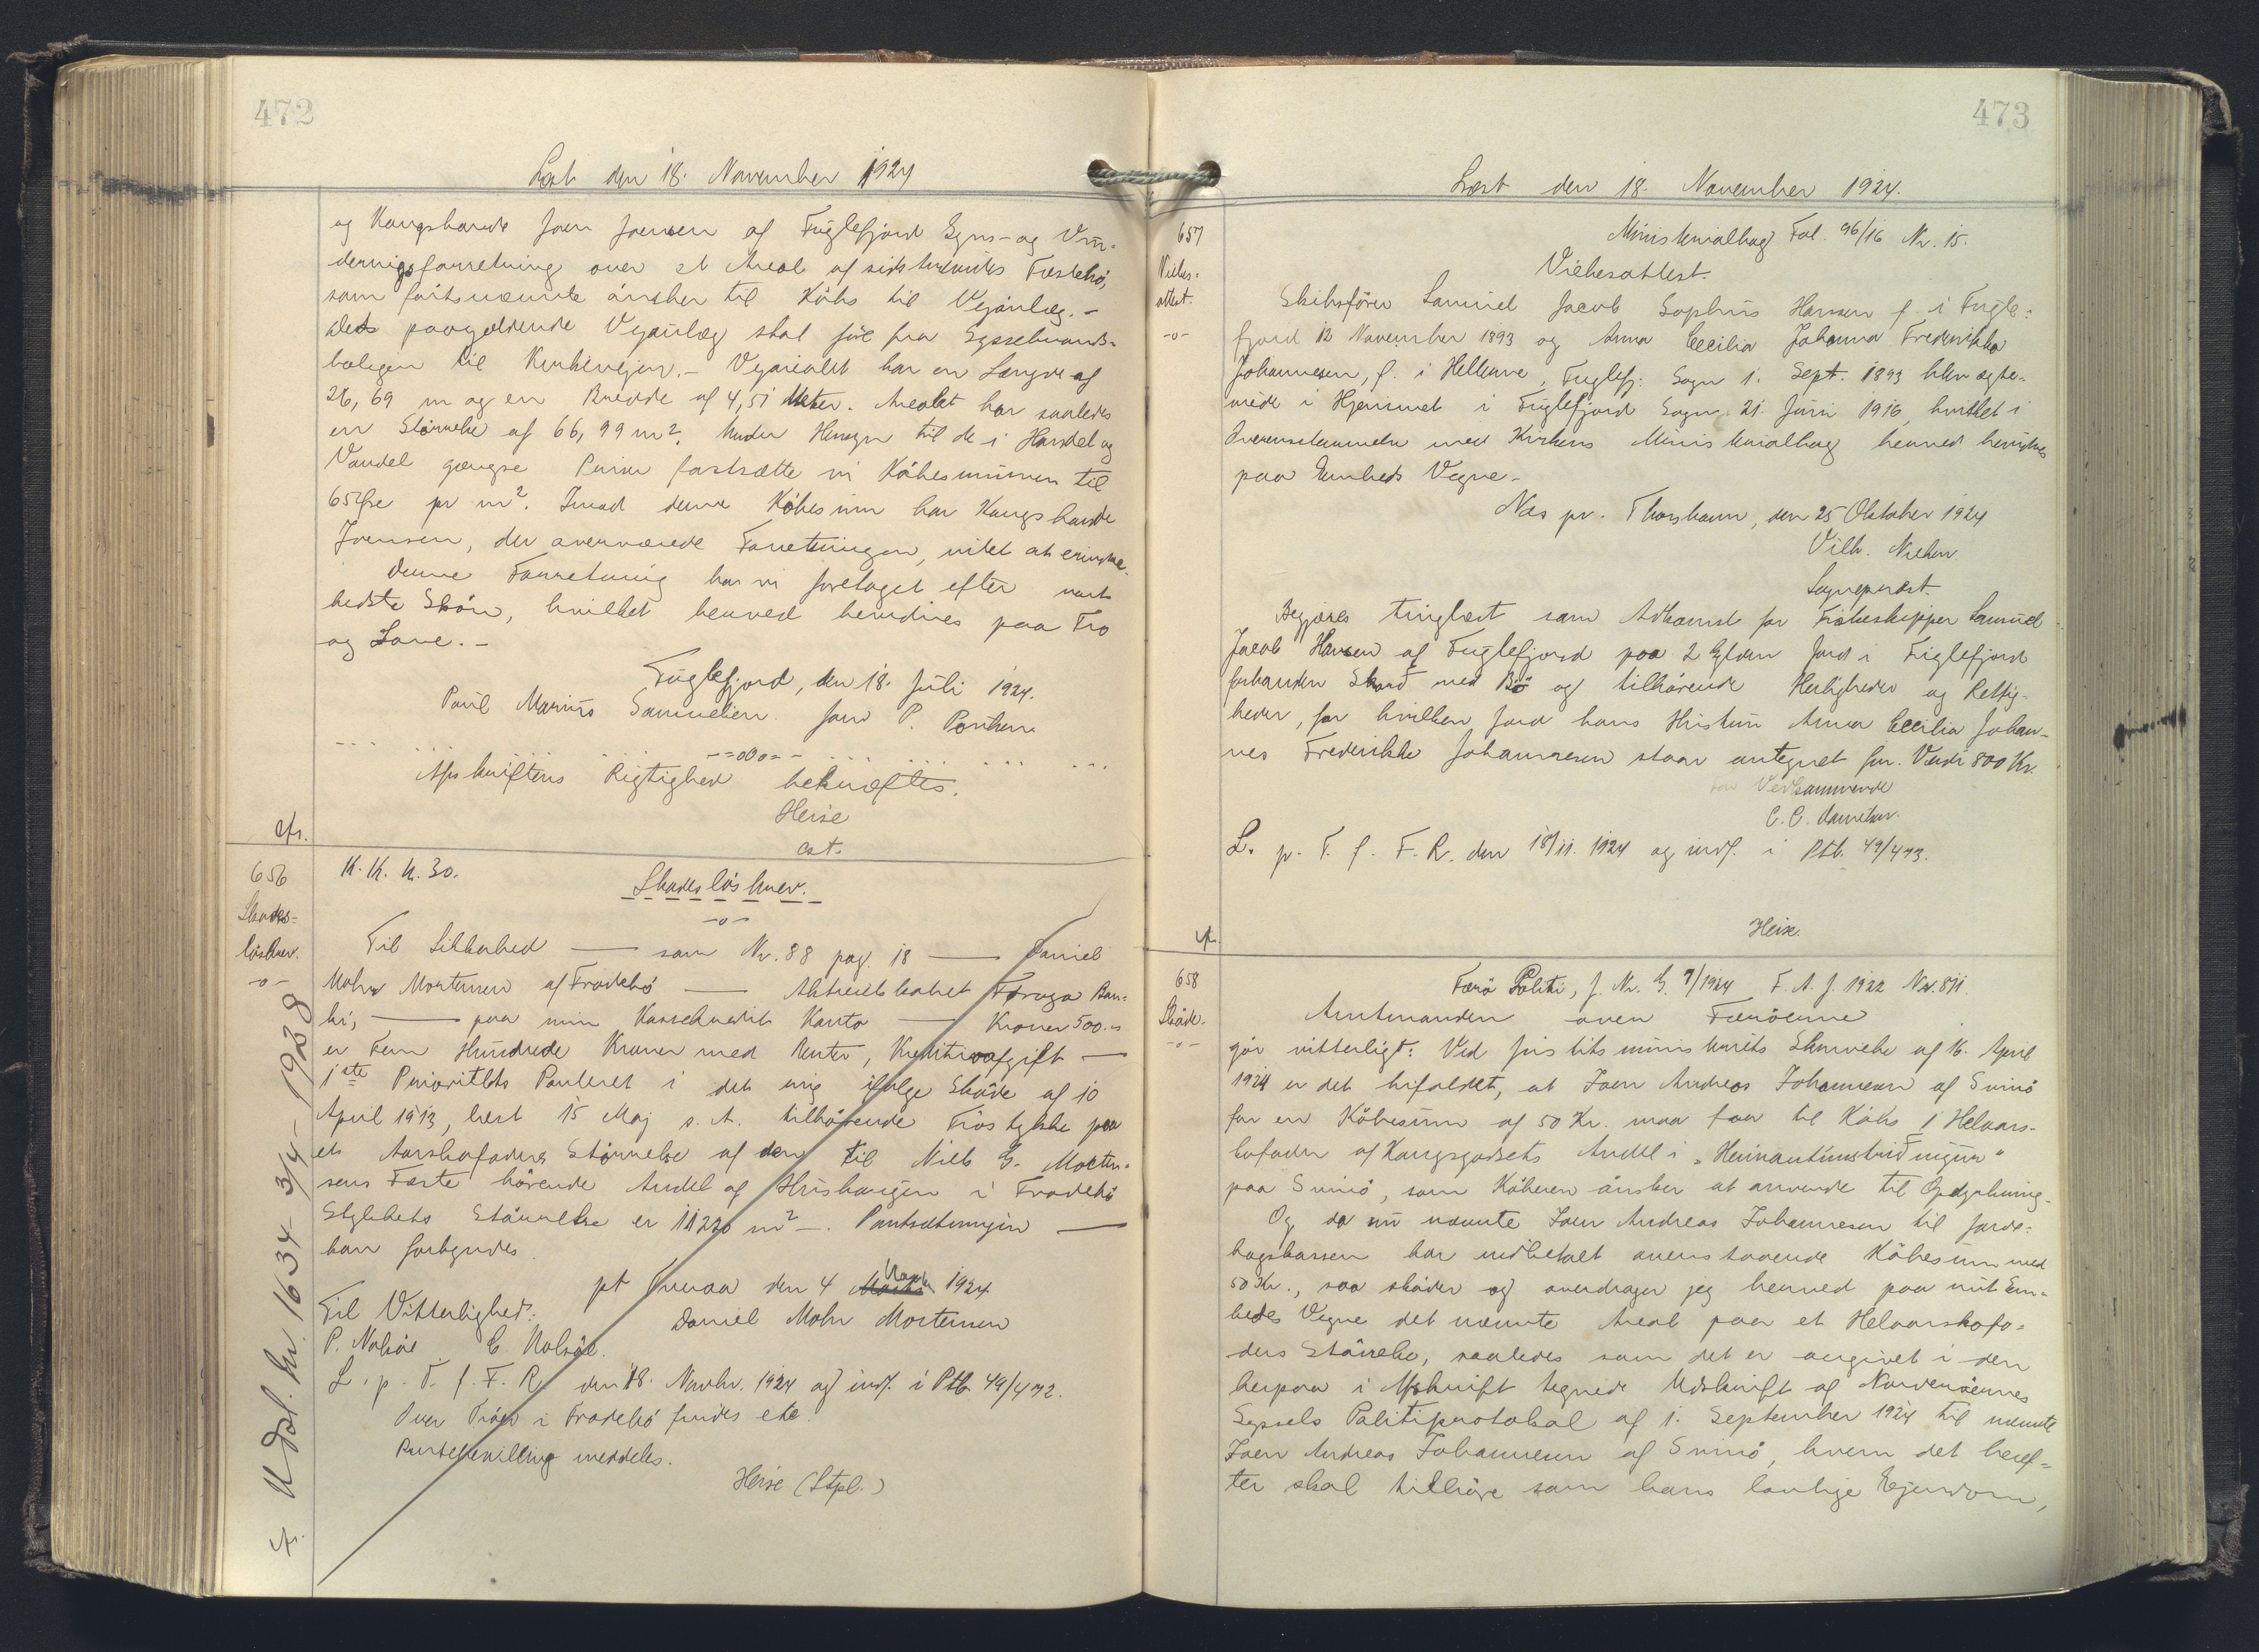 472
Læst den 18. November 1924
og Kongsbonde Joen Joensen af Fuglefjord Syns- og Vur-
deringsforretning over et Areal af sidstnævntes Fæstebö,
som förstnævnte önsker til Köbs til Vejanlæg. -
Det paagældende Vejanlæg skal före fra Sysselmands-
boligen til Kirkevejen. - Vejarealet har en Længde af
26,69 m og en Bredde af 4,51 Meter. Arealet har saaledes
en Störrelse af 66,99 m². Under Hensyn til de i Handel og
Vandel gængse Priser fastsætte vi Köbesummen til
65 Öre pr m². Imod denne Köbesum har Kongsbonde
Joensen, der overværede Forretningen, intet at erindre.
Denne Forretning har vi foretaget efter vort
bedste Skön, hvilket herved bevidnes paa Tro
og Love. -
Fuglefjord, den 18. Juli 1924.
Poul Marius Samuelsen. Joen P.
--=o0o=--
Afskriftens Rigtighed bekræftes.
Heise
cst.
cfr.
656
Skades-
lösbrev.
-o-
K. K. U. 30.
Skadeslösbrev.
-o-
Til Sikkerhed — som Nr. 88 pag. 18 — Daniel
Mohr Mortensen af Frodebö — Aktieselskabet Föroya Ban-
ki, — paa min Kassekredit Konto — Kroner 500.-
er Fem Hundrede Kroner med Renter, Kreditivafgift —
1ste Prioritets Panteret i det mig ifölge Sköde af 10
April 1913, læst 15 Maj s. A. tilhörende Tröstykke paa
et Aarskofoders Störrelse af den til Niels E. Morten-
sens Fæste hörende Andel af Hushaugen i Frodebö
Stykkets Störrelse er 11220 m² —. Pantsætningen —
kan forbydes.
pt Tveraa den 4 Novbr 1924
Til Vitterlighed:
Daniel Mohr Mortensen
P. Nolsöe E. Nolsöe.
L. p. T. f. F. R. den 18. Novbr. 1924 og indf. i Ptb. 49/472.
Over Tröer i Frodebö findes etc.
Pantebevilling meddeles.
Heise (Stpl.)
cfr. Udsl. Nr. 1634 - 3/4 - 1928
473
Læst den 18. November 1924.
657
Vielses-
attest.
-o-
Ministerialbog Fol. 96/16 Nr. 15.
Vielsesattest.
Skibsförer Samuel Jacob Sophus Hansen f. i Fugle-
fjord 12 November 1893 og Anna Cecilia Johanna Frederikka
Johannesen, f. i Hellerne, Fuglefj: Sogn 1. Sept. 1893 blev ægte-
viede i Hjemmet i Fuglefjord Sogn 21. Juni 1916, hvilket i
Overensstemmelse med Kirkens Ministerialbog herved bevidnes
paa Embeds Vegne. -
Næs pr. Thorshavn, den 25 Oktober 1924
Vilh. Nielsen.
Sognepræst.
Begjæres tinglæst som Adkomst for Fiskeskipper Samuel
Jacob Hansen af Fuglefjord paa 2 Gylden Jord i Fuglefjord
forhenden Skarð med Bö og tilhörende Herligheder og Rettig-
heder, for hvilken Jord hans Hustru Anna Cecilia Johan-
nes Frederikke Johannesen staar antegnet for. Værdi 800 Kr.
For Vedkommende
C. C. Danielsen.
L. p. T. f. F. R. den 18/11. 1924 og indf. i Ptb. 49/473.
Heise.
cfr.
658
Sköde.
-o-
Færö Politi, J. Nr. G. 9/1924 F. A. J. 1922 Nr. 811.
Amtmanden over Færöerne
gör vitterligt: Ved Justitsministeriets Skrivelse af 16. April
1924 er det bifaldet, at Joen Andreas Johannesen af Svinö
for en Köbesum af 50 Kr. maa faa til Köbs 1 Helaars-
kofoder af Kongsgodsets Andel i "
paa Svinö, som Köberen önsker at anvende til Opdyrkning.
Og da nu nævnte Joen Andreas Johannesen til Jorde-
bogskassen har indbetalt ovenstaaende Köbesum med
50 Kr., saa sköder og overdrager jeg herved paa mit Em-
bedes Vegne det nævnte Areal paa et Helaarskofo-
ders Störrelse, saaledes som det er angivet i den
herpaa i Afskrift tegnede Udskrift af Norderöernes
Syssels Politiprotokol af 1. September 1924 til nævnte
Joen Andreas Johannesen af Svinö, hvem det heref-
ter skal tilhöre som hans lovlige Ejendom,